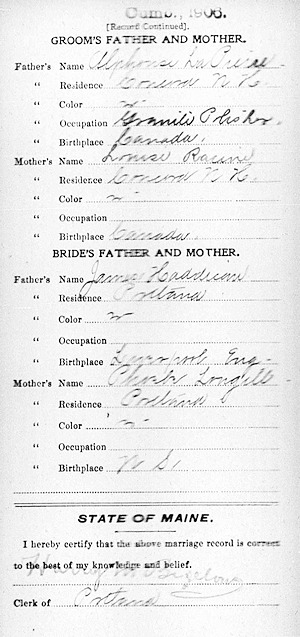 Cumb., 1906.
[Record Continued].
GROOM'S FATHER AND MOTHER.
Father's Name Alphonse La Pierre
" Residence Concord N. H.
" Color W
" Occupation Granite Polisher
" Birthplace Canada.
Mother's Name Louise Racine
" Residence Concord N. H.
" Color W
" Occupation
" Birthplace Canada.
BRIDE'S FATHER AND MOTHER.
Father's Name James
" Residence Portland
" Color W
" Occupation
" Birthplace Liverpool Eng-
Mother's Name Phoebe
" Residence Portland
" Color W
" Occupation
" Birthplace N. S.
STATE OF MAINE.
I hereby certify that the above marriage record is correct
to the best of my knowledge and belief.
Harry M. Bigelow
Clerk of Portland